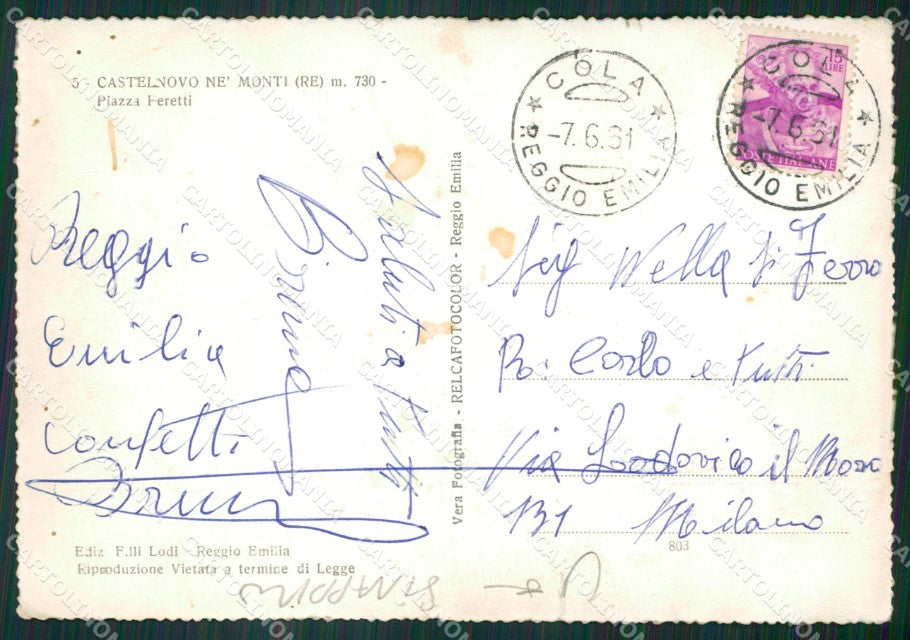 5 - CASTELNOVO NE' MONTI (RE) m. 730 -
Piazza Peretti
COLA
-7.6.61
REGGIO EMILIA
COLA
-7.6.61
REGGIO EMILIA
15
LIRE
POSTE ITALIANE
Reggio
Emilia
Confetti
Bruna
Saluti a tutti
Vera Fotografia - RELCAFOTOCOLOR - Reggio Emilia
Sig Wella
Ferro
Carlo e tutti
Via Lodovico il Moro
131 Milano
803
Ediz F.lli Lodi - Reggio Emilia
Riproduzione Vietata a termine di Legge
CARTOLINOMANIA